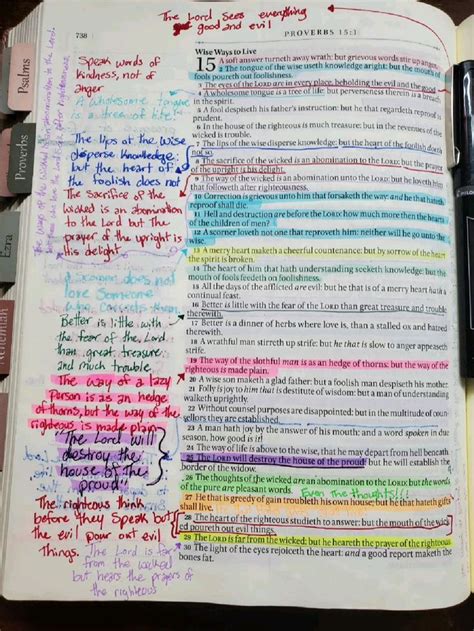 The Lord sees everything
good and evil
738
PROVERBS 15:1
Psalms
Proverbs
Ezra
Nehemiah
Speak words of
kindness, not of
anger
A wholesome tongue
is a tree of life
The lips of the wise
disperse knowledge,
but the heart of
the foolish does not
The sacrifice of the
wicked is an abomination
to the Lord but the
prayer of the upright is
his delight
A scorner does not
love someone
who corrects him
Better is little with
the fear of the Lord
than great treasure
and much trouble
The way of a lazy
person is as an hedge
of thorns, but the way of the
righteous is made plain
"The Lord will
destroy the
house of the
proud"
The righteous think
before they speak but
the evil pour out evil
things.
The Lord is far
from the wicked
but hears the prayers
of the righteous
Wise Ways to Live
15 A soft answer turneth away wrath: but grievous words stir up anger.
2 The tongue of the wise useth knowledge aright: but the mouth of
fools poureth out foolishness.
3 The eyes of the LORD are in every place, beholding the evil and the good.
4 A wholesome tongue is a tree of life: but perverseness therein is a breach
in the spirit.
5 A fool despiseth his father's instruction: but he that regardeth reproof is
prudent.
6 In the house of the righteous is much treasure: but in the revenues of the
wicked is trouble.
7 The lips of the wise disperse knowledge: but the heart of the foolish
doeth not so.
8 The sacrifice of the wicked is an abomination to the LORD: but the prayer
of the upright is his delight.
9 The way of the wicked is an abomination unto the LORD: but he loveth him
that followeth after righteousness.
10 Correction is grievous unto him that forsaketh the way: and he that hateth
reproof shall die.
11 Hell and destruction are before the LORD: how much more then the hearts
of the children of men?
12 A scorner loveth not one that reproveth him: neither will he go unto the
wise.
13 A merry heart maketh a cheerful countenance: but by sorrow of the heart
the spirit is broken.
14 The heart of him that hath understanding seeketh knowledge: but the
mouth of fools feedeth on foolishness.
15 All the days of the afflicted are evil: but he that is of a merry heart hath a
continual feast.
16 Better is little with the fear of the LORD than great treasure and trouble
therewith.
17 Better is a dinner of herbs where love is, than a stalled ox and hatred
therewith.
18 A wrathful man stirreth up strife: but he that is slow to anger appeaseth
strife.
19 The way of the slothful man is as an hedge of thorns: but the way of the
righteous is made plain.
20 A wise son maketh a glad father: but a foolish man despiseth his mother.
21 Folly is joy to him that is destitute of wisdom: but a man of understanding
walketh uprightly.
22 Without counsel purposes are disappointed: but in the multitude of coun-
sellors they are established.
23 A man hath joy by the answer of his mouth: and a word spoken in due
season, how good is it!
24 The way of life is above to the wise, that he may depart from hell beneath.
25 The LORD will destroy the house of the proud: but he will establish the
border of the widow.
26 The thoughts of the wicked are an abomination to the LORD: but the words
of the pure are pleasant words.
Even the thoughts!!!
27 He that is greedy of gain troubleth his own house; but he that hateth gifts
shall live.
28 The heart of the righteous studieth to answer: but the mouth of the wick-
ed poureth out evil things.
29 The LORD is far from the wicked: but he heareth the prayer of the righteous.
30 The light of the eyes rejoiceth the heart: and a good report maketh the
bones fat.